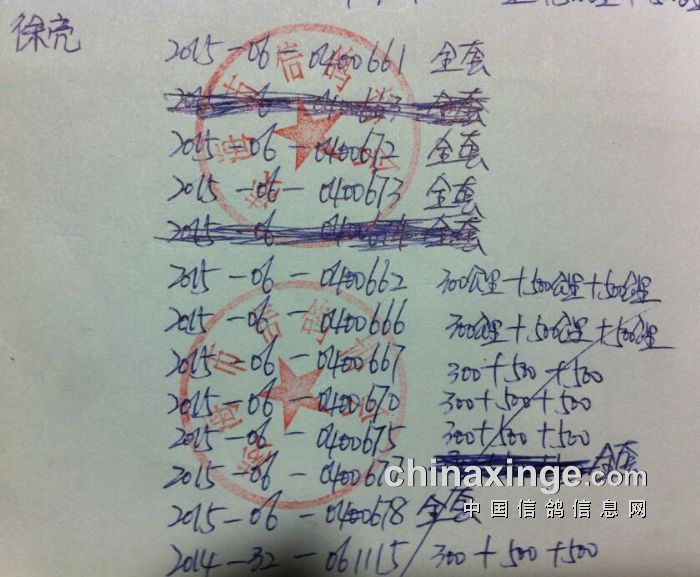 徐亮
2015-06-0400661 全套
2015-06-0400672 全套
2015-06-0400673 全套
2015-06-0400662 300公里+500公里+500公里
2015-06-0400666 300公里+500公里+500公里
2015-06-0400667 300+500+500
2015-06-0400670 300+500+500
2015-06-0400675 300+500+500
2015-06-0400677 全套
2015-06-0400678 全套
2014-32-061115 300+500+500
市信鸽
市信鸽
chinaxinge.com
中国信鸽信息网